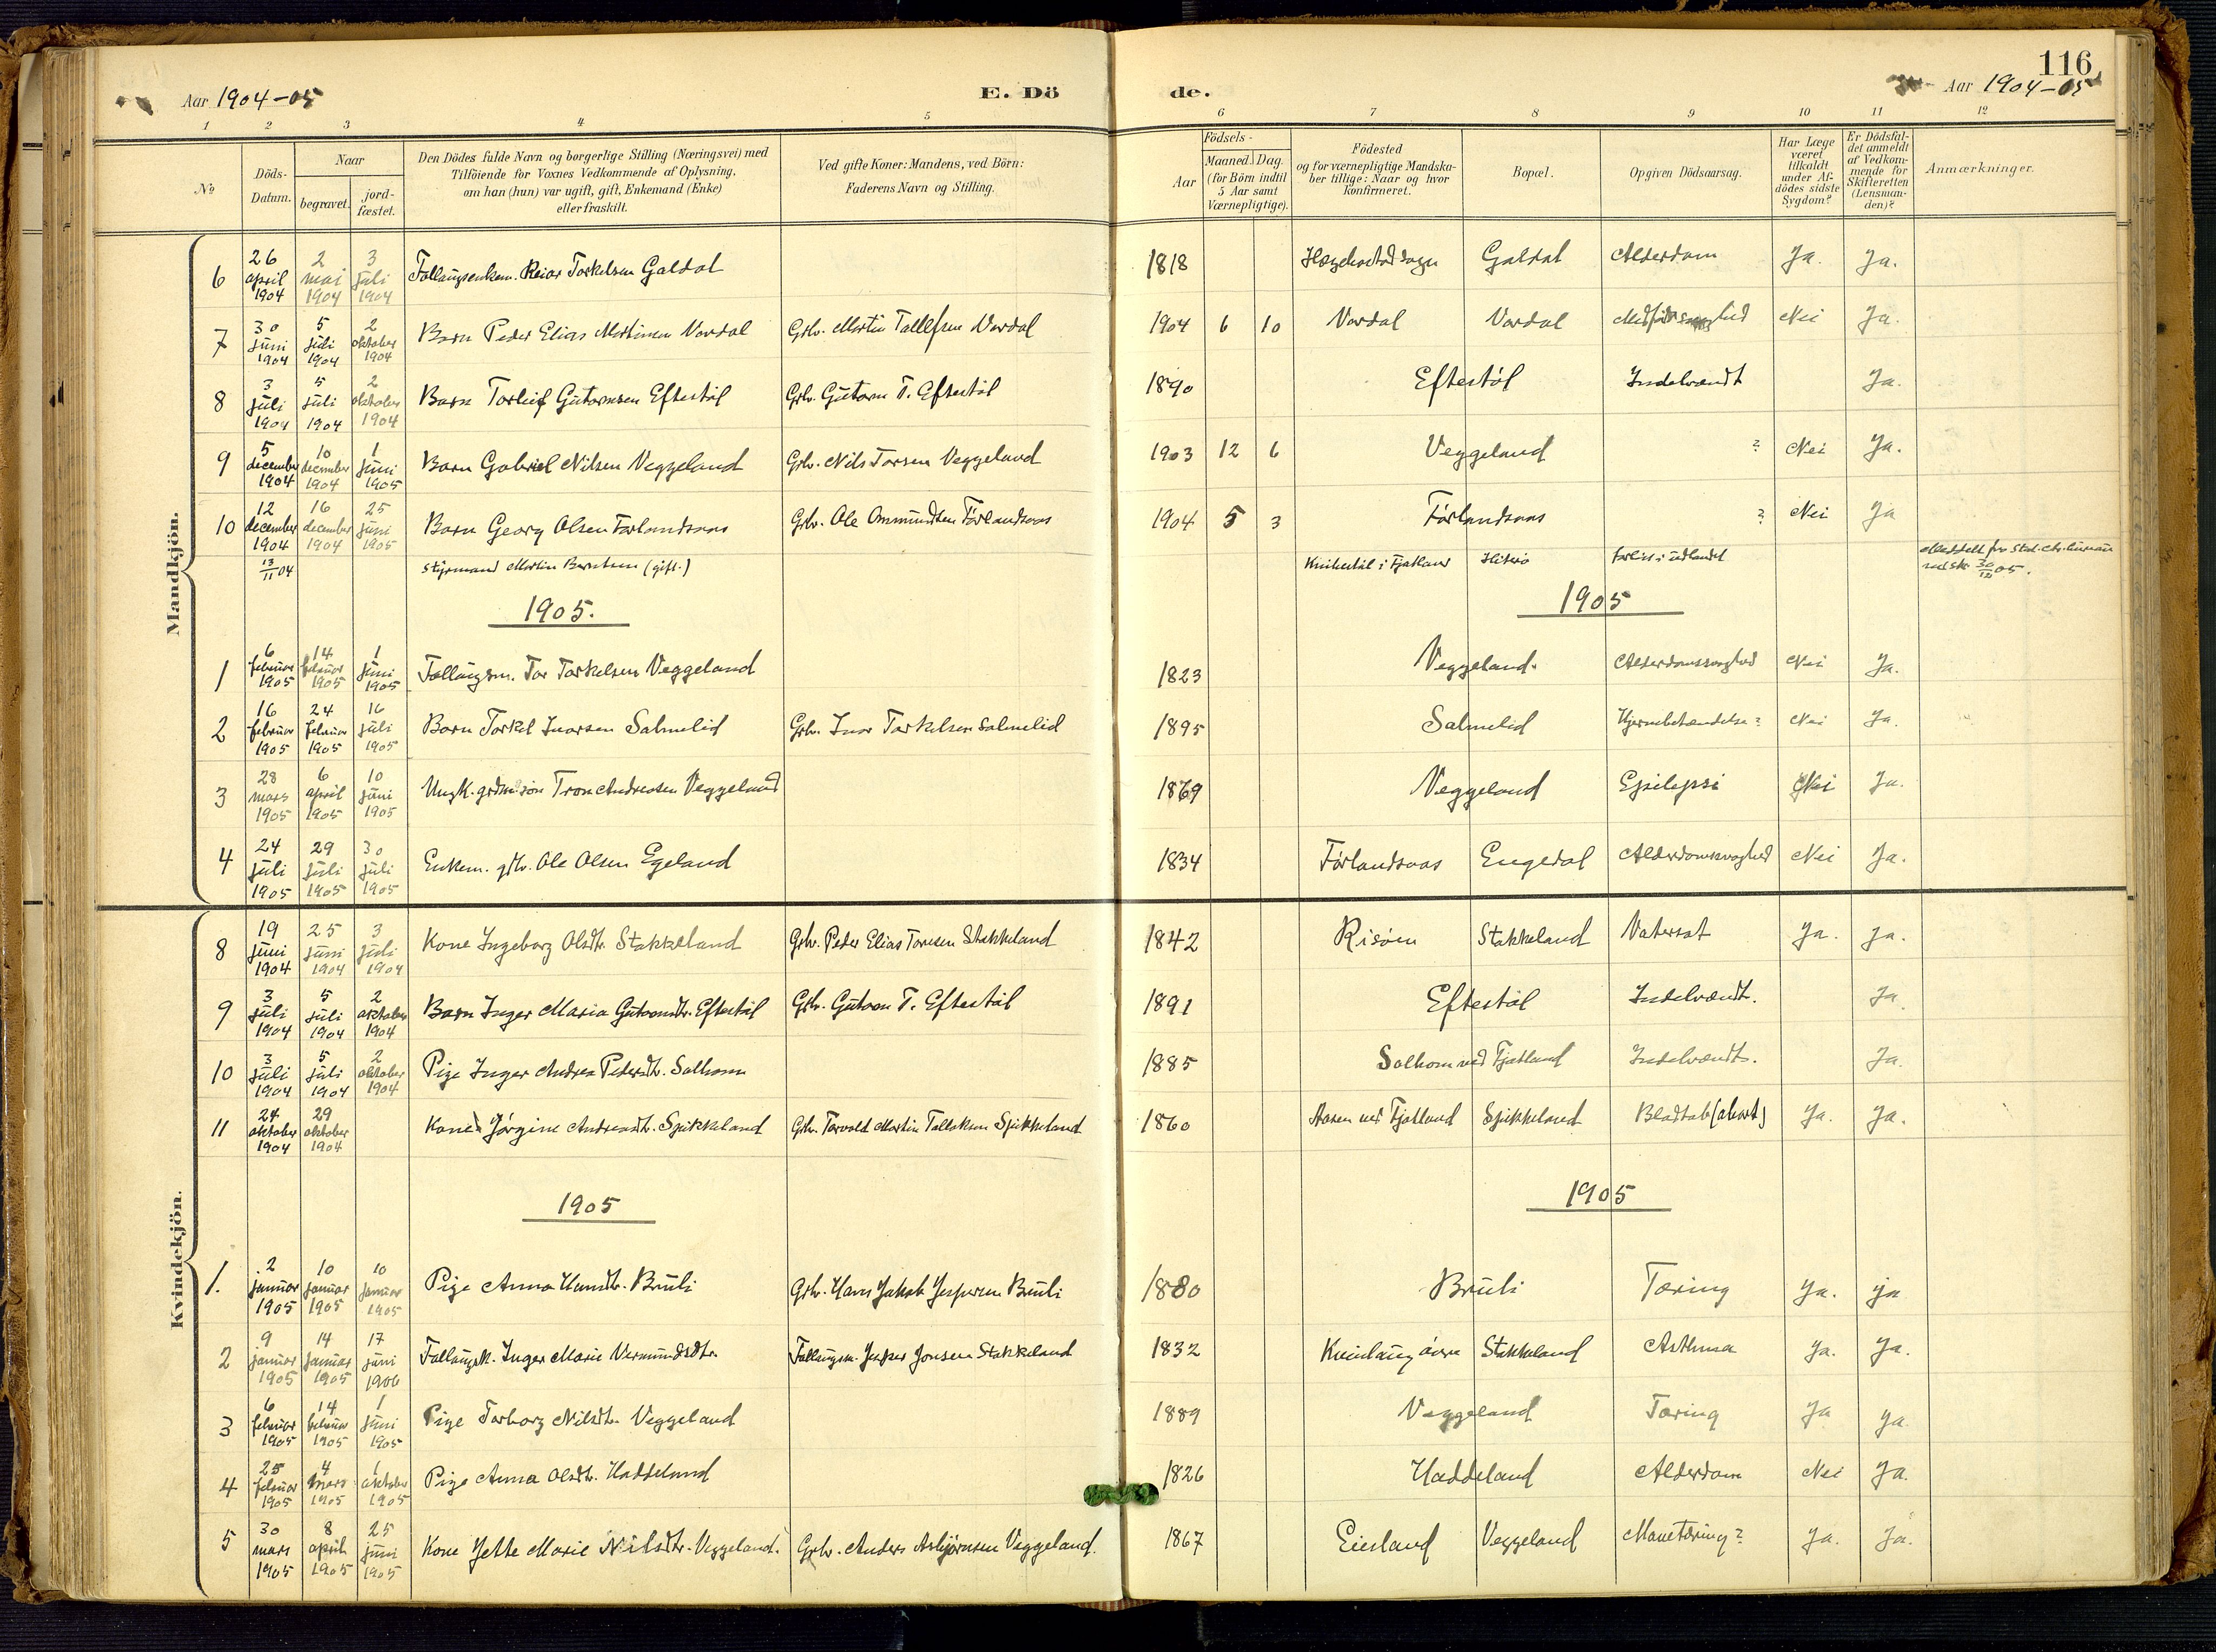 116
Aar 1904-05 E. Dö de. Aar 1904-05
1 2 3 4 5 6 7 8 9 10 11 12
No
Döds-Datum.
Naar
begravet.
jord-fæstet.
Den Dödes fulde Navn og borgerlige Stilling (Næringsvei) med
Tilföiende for Voxnes Vedkommende af Oplysning,
om han (hun) var ugift, gift, Enkemand (Enke)
eller fraskilt.
Ved gifte Koner: Mandens, ved Börn:
Faderens Navn og Stilling.
Födsels-
Aar
Maaned. Dag.
(for Börn indtil
5 Aar samt
Værnepligtige).
Födested
og for værnepligtige Mandska-
ber tillige: Naar og hvor
konfirmeret.
Bopæl.
Opgiven Dödsaarsag.
Har Læge
været
tilkaldt
under Af-
dödes sidste
Sygdom?
Er Dödsfal-
det anmeldt
af Vedkom-
mende for
Skifteretten
(Lensman-
den)?
Anmærkninger.
Mandkjön.
6 26 april 1904 2 mai 1904 3 juli 1904 Reiar Torkelsen Galdal 1818 Galdal Alderdom Ja. Ja.
7 30 juni 1904 5 juli 1904 2 oktober 1904 Barn Peder Elias Martinsen Vordal Grbr. Martin Tallefsen Vordal 1904 6 10 Vordal Vordal Nei Ja.
8 3 juli 1904 5 juli 1904 2 oktober 1904 Barn Torleif Gutormsen Eftestöl Grbr. Gutorm T. Eftestöl 1890 Eftestöl Indebrændt Ja.
9 5 december 1904 10 december 1904 1 juni 1905 Barn Gabriel Nilsen Veggeland Grbr. Nils Torsen Veggeland 1903 12 6 Veggeland ? Nei Ja.
10 12 december 1904 16 december 1904 25 juni 1905 Barn Georg Olsen Förlandsaas Grbr. Ole Ommundsen Förlandsaas 1904 5 3 Förlandsaas ? Nei Ja
13/11 04 Styrmand Martin Berntsen (gift.) i Fjotland Hiterö forlist i udlandet 30/12 05.
1905. 1905
1 6 februar 1905 14 februar 1905 1 juni 1905 Follaugsm. Tor Torkelsen Veggeland 1823 Veggeland. Alderdomssvaghed Nei Ja.
2 16 februar 1905 24 februar 1905 16 juli 1905 Barn Torkel Ivarsen Salmelid Grbr. Ivar Torkelsen Salmelid 1895 Salmelid Hjernebetændelse? Nei Ja.
3 28 mars 1905 6 april 1905 10 juni 1905 Ungk. grdm.sön Tron Andreasen Veggeland 1869 Veggeland Epilepsi Nei Ja.
4 24 juli 1905 29 juli 1905 30 juli 1905 Enkem. gbr. Ole Olsen Egeland 1834 Förlandsaas Engedal Alderdomssvaghed Nei Ja.
Kvindekjön.
8 19 juni 1904 25 juni 1904 3 juli 1904 Kone Ingeborg Olsdtr. Stakkeland Grbr. Peder Elias Torsen Stakkeland 1842 Risöen Stakkeland Vatersot Ja. Ja.
9 3 juli 1904 5 juli 1904 2 oktober 1904 Barn Inger Maria Gutormsdtr. Eftestöl Grbr. Gutorm T. Eftestöl 1891 Eftestöl Indebrændt. Ja.
10 3 juli 1904 5 juli 1904 2 oktober 1904 Pige Inger Andrea Pedersdtr. Solhom 1885 Solhom ved Fjotland Indebrændt. Ja.
11 24 oktober 1904 29 oktober 1904 Kone Jörgine Andreasdtr. Spikkeland Grbr. Torvald Martin Tallaksen Spikkeland 1860 Aasen ved Fjotland Spikkeland Blodtab (abort) Ja. Ja.
1905 1905
1. 2 januar 1905 10 januar 1905 10 januar 1905 Pige Anna Hansdtr. Bruli Grbr. Hans Jakob Jespersen Bruli 1880 Bruli Tæring Ja. ja
2 9 januar 1905 14 januar 1905 17 juni 1906 Inger Marie Vermundsdtr. Follaugsm. Jesper Jonsen Stakkeland 1832 Stakkeland Asthma Ja. Ja.
3 6 februar 1905 14 februar 1905 1 juni 1905 Pige Torborg Nilsdtr. Veggeland 1889 Veggeland Tæring Ja Ja
4 25 februar 1905 4 mars 1905 1 oktober 1905 Pige Anna Olsdtr. Haddeland 1826 Haddeland Alderdom Nei Ja.
5 30 mars 1905 8 april 1905 25 juni 1905 Kone Jette Marie Nilsdtr. Veggeland. Grbr. Anders Asbjörnsen Veggeland. 1867 Eiesland Veggeland Mavetæring? Ja. Ja.